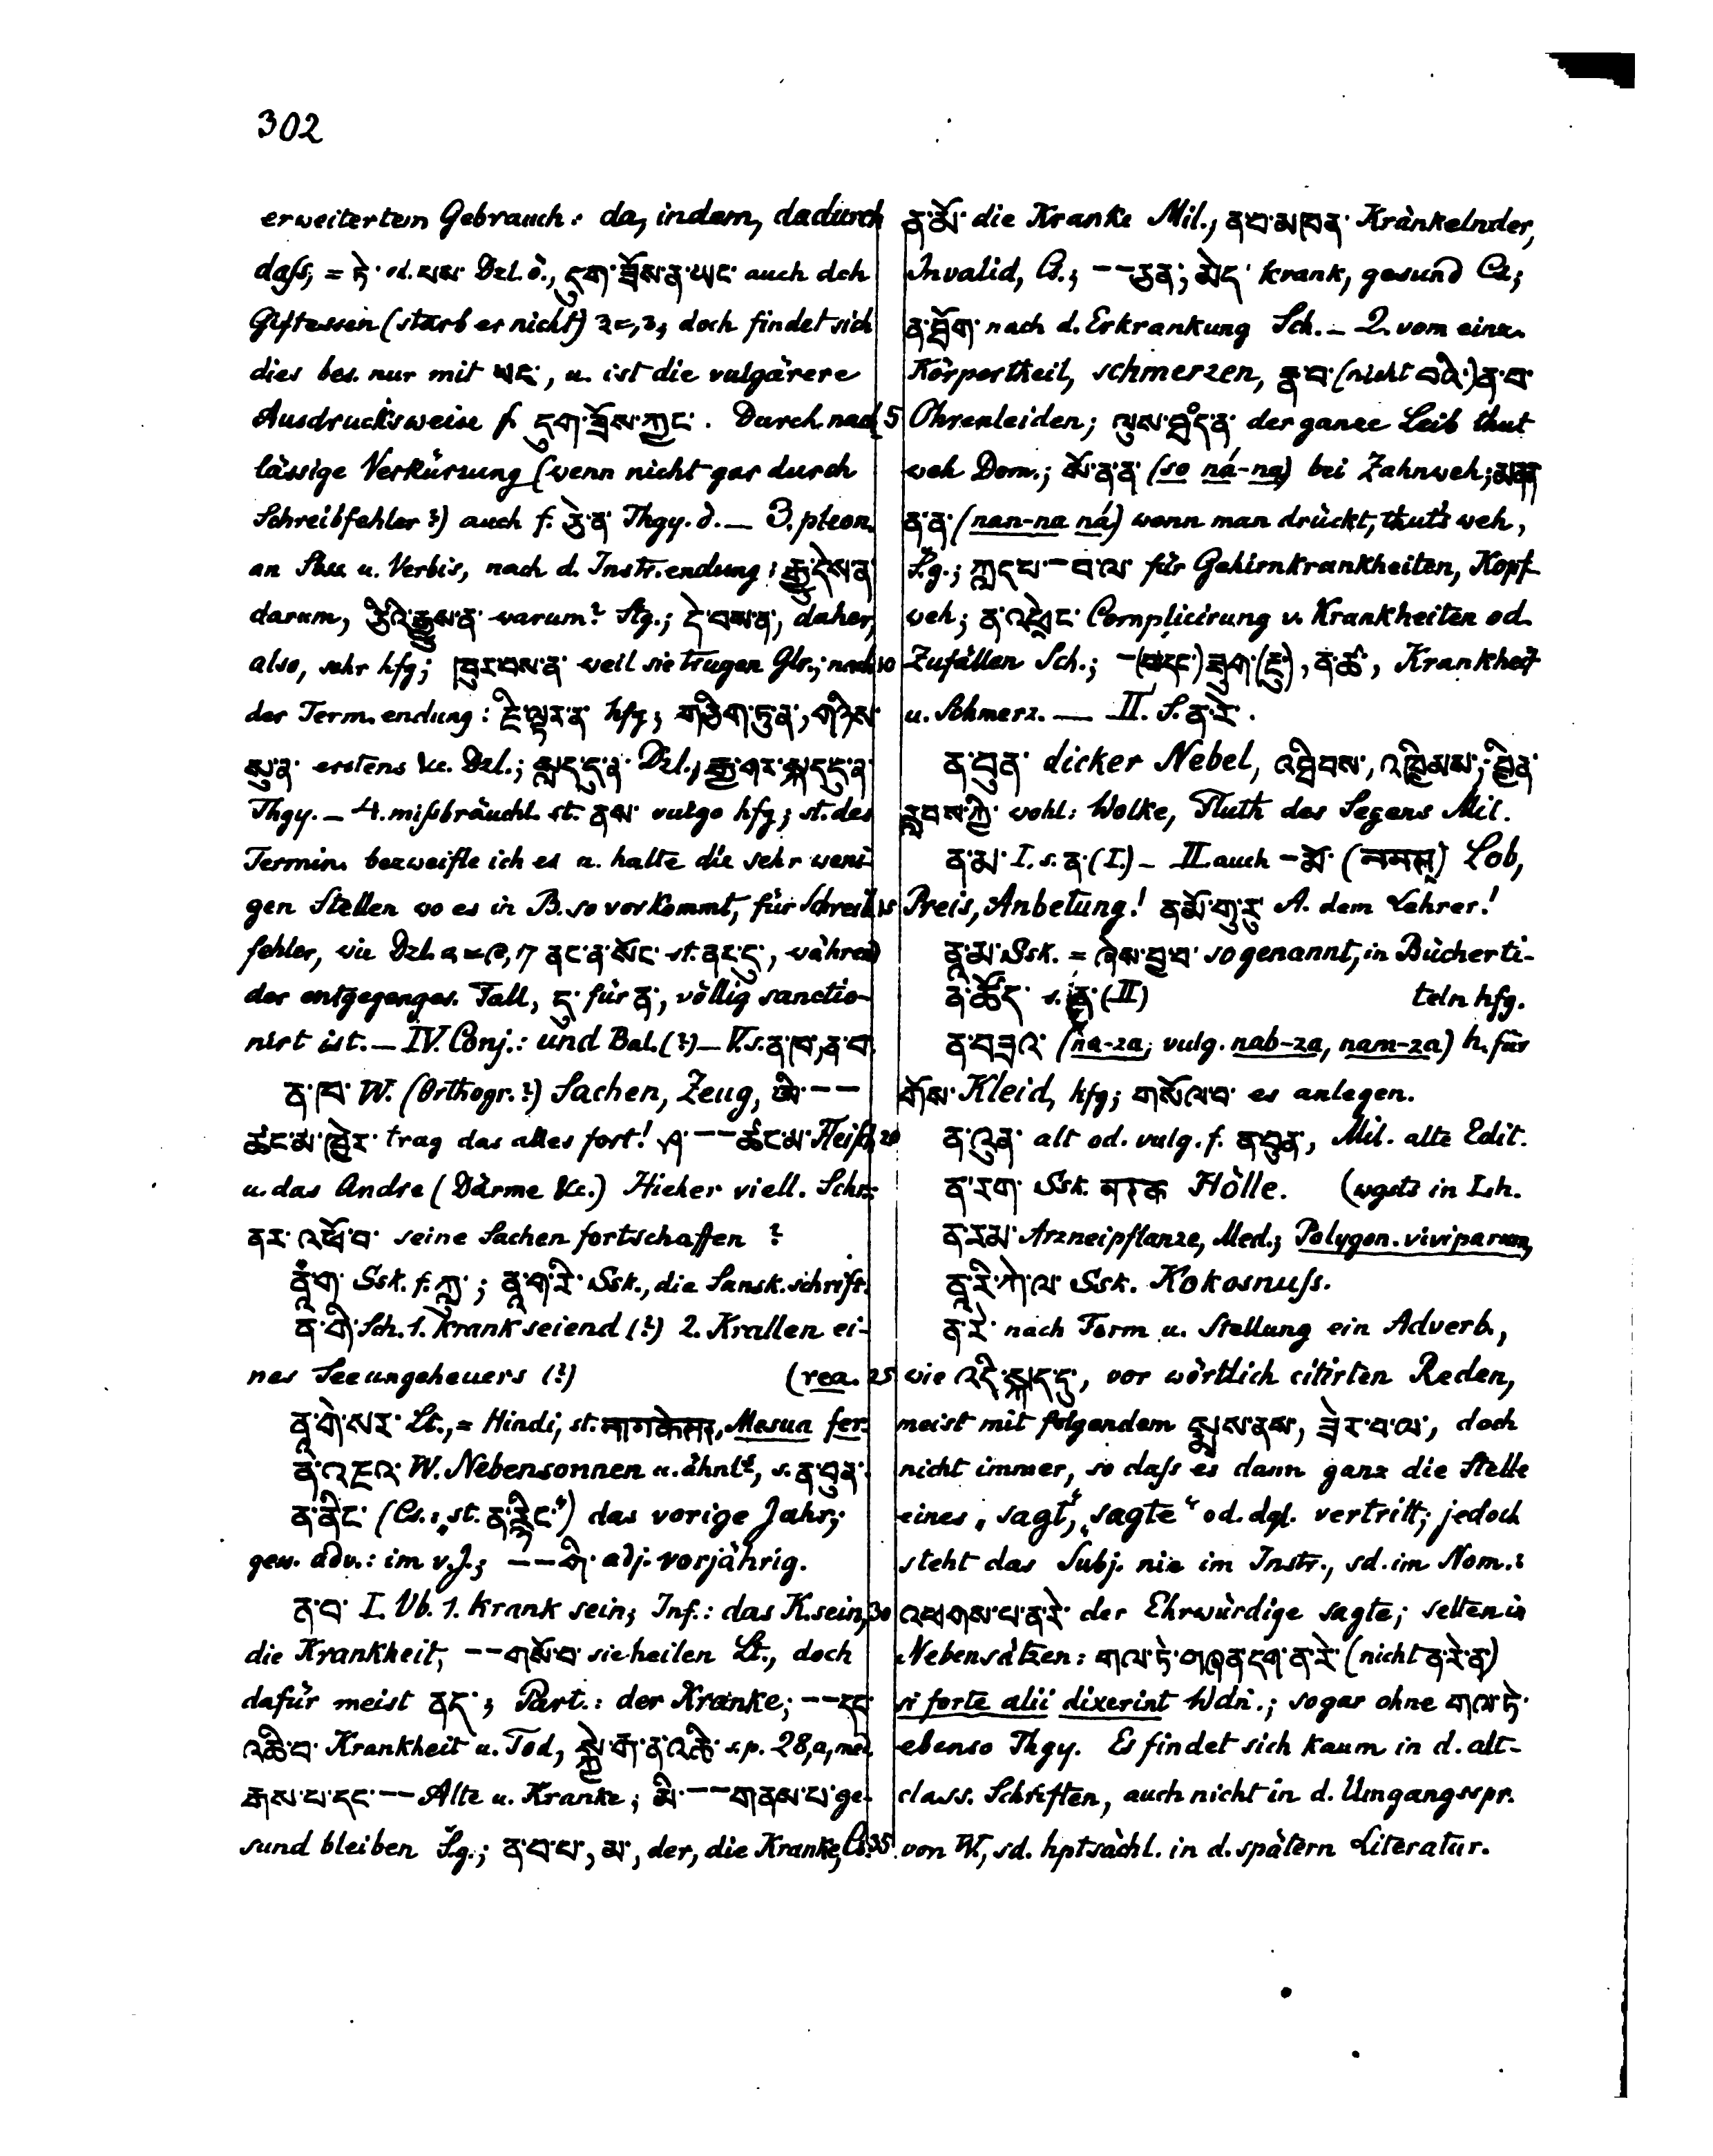 302
erweiterten Gebrauch: da, indem, dadurch
daſs, = ཏེ་ od. པས་ Dzl. ཎ., དུག་ཟོས་ན་ཡང་ auch dch
Giftessen (starb er nicht) doch findet sich
dies bes. nur mit ཡང་, u. ist die vulgärere
Ausdrucksweise f. དུག་ཟོས་ཀྱང་. Durch nach
lässige Verkürzung (wenn nicht gar durch
Schreibfehler?) auch f. ཅི་ན་ Thgy. d. — 3. pleon.
an Sbst. u. Verbis, nach d. Instr. endung: རྒྱུ་དེས་ན་
darum, ཅིའི་རྒྱུས་ན་ warum? Stg.; དེ་བས་ན་, daher,
also, sehr hfg; ཁུར་བས་ན་ weil sie trugen Glr.; nach
der Term. endung: ཇི་ལྟར་ན་ hfg; གཅིག་ཏུ་ན་, གཉིས་
སུ་ན་ erstens &c. Dzl.; སྐད་དུ་ན་ Dzl., རྒྱ་གར་སྐད་དུ་ན་
Thgy. — 4. miſsbräuchl. st. ནས་ vulgo hfg; st. des
Termin. bezweifle ich es u. halte die sehr weni-
gen Stellen wo es in B. so vorkommt, für Schreib
fehler, wie Dzl. 17 ནང་ན་སོང་ st. ནང་དུ་, während
der entgegenges. Fall, དུ་ für ན་, völlig sanctio-
nirt ist. — IV. Conj.: und Bal. (?) — V. s. ན་ཁ་, ན་བ་.
ན་ཁ་ W. (Orthogr.?) Sachen, Zeug, ཨི་ — —
ཚང་མ་ཁྱེར་ trag das alles fort! ཤ་ — — ཚང་མ་ Fleisch
u. das Andre (Därme &c.) Hieher viell. Schr.:
ནར་འཕོ་བ་ seine Sachen fortschaffen?
ནཱ་ག་ Ssk. f. ཀླུ་; ནཱ་ག་རི་ Ssk., die Sansk. schrift.
ན་གི་ Sch. 1. krank seiend (?) 2. Krallen ei-
nes Seeungeheuers (?) (rea.
ནཱ་གེ་སར་ Lt., = Hindi, st. नागकेसर, Mesua fer-
ན་འཇའ་ W. Nebensonnen u. ähnl., s. ན་བུན་.
ན་ནིང་ (Cs.: „st. ན་རྙིང་“) das vorige Jahr;
gew. adv.: im v. J.; — — གི་ adj. vorjährig.
ན་བ་ I. Vb. 1. krank sein; Inf.: das K. sein,
die Krankheit, — — གསོ་བ་ sie heilen Lt., doch
dafür meist ནད་; Part.: der Kranke; — — དང་
འཆི་བ་ Krankheit u. Tod, སྐྱེ་རྒ་ན་འཆི་ s. p. 28, a,
རྒས་པ་དང་ — — Alte u. Kranke; མི་ — — གནས་པ་ ge-
sund bleiben S̆g.; ན་བ་པ་, མ་, der, die Kranke, Cs.
ན་མོ་ die Kranke Mil., ན་བ་མཁན་ Kränkelnder,
Invalid, Cs.; — — ཅན་; མེད་ krank, gesund Cs;
ན་ཐོག་ nach d. Erkrankung Sch. — 2. vom einz.
Körpertheil, schmerzen, རྣ་བ་ (nicht བའི་) ན་བ་
5 Ohrenleiden; ལུས་པོ་ན་ der ganze Leib thut
weh Dom.; སོ་ན་ན་ (so ná-na) bei Zahnweh; མནན་
ན་ན་ (nan-na ná) wenn man drückt, thut's weh,
S̆.g.; ཀླད་པ་ — བ་ལ་ für Gehirnkrankheiten, Kopf
weh; ན་འཕྲེང་ Complicirung v. Krankheiten od.
10 Zufällen Sch.; — (བ་དང་) ཟུག་ (རྔུ་), ན་ཚ་, Krankheit
u. Schmerz. — II. S. ན་རེ་.
ན་བུན་ dicker Nebel, འཐིབས་, འཁྱིམས་; བྱིན་
རླབས་ཀྱི་ wohl: Wolke, Fluth des Segens Mil.
ན་མ་ I. s. ན་ (I.) — II. auch — མོ་ (नमस्) Lob,
15 Preis, Anbetung! ན་མོ་གུ་རུ་ A. dem Lehrer!
ནཱ་མ་ Ssk. = ཞེས་བྱ་བ་ so genannt, in Bücherti-
ན་ཚོད་ s. ན་ (II) teln hfg.
ན་བཟའ་ (na-za; vulg. nab-za, nam-za) h. für
གོས་ Kleid, hfg; གསོལ་བ་ es anlegen.
20 ན་འུན་ alt od. vulg. f. ན་བུན་, Mil. alte Edit.
ན་རག་ Ssk. नरक Hölle. (wgsts in Lh.
ན་རམ་ Arzneipflanze, Med.; Polygon. viviparum,
ནཱ་རི་ཀེ་ལ་ Ssk. Kokosnuſs.
ན་རེ་ nach Form u. Stellung ein Adverb.,
25 wie འདི་སྐད་དུ་, vor wörtlich citirten Reden,
meist mit folgendem སྨྲས་ནས་, ཟེར་བ་ལ་, doch
nicht immer, so daſs es dann ganz die Stelle
eines „sagt“, „sagte“ od. dgl. vertritt; jedoch
steht das Subj. nie im Instr., sd. im Nom.:
30 འཕགས་པ་ན་རེ་ der Ehrwürdige sagte; selten in
Nebensätzen: གལ་ཏེ་གཞན་དག་ན་རེ་ (nicht ན་རེ་ན་)
si forte alii dixerint Wdn.; sogar ohne གལ་ཏེ་
ebenso Thgy. Es findet sich kaum in d. alt-
class. Schriften, auch nicht in d. Umgangsspr.
35 von W., sd. hptsächl. in d. spätern Literatur.